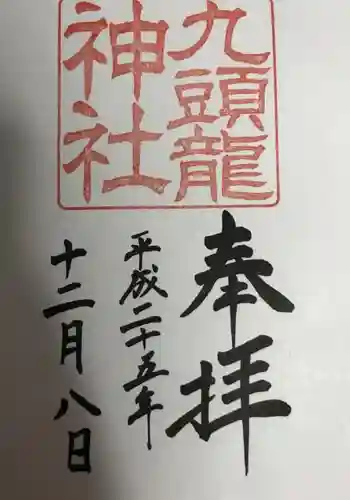 九頭龍
神社
奉拝
平成二十五年
十二月八日